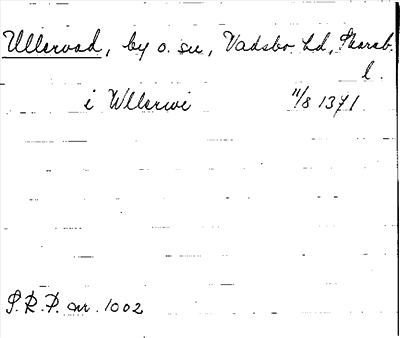 Ullervad, by o. sn, Vadsbo hd, Skarab.
l.
i Wllerwi 11/8 1371
S.R.P. nr. 1002